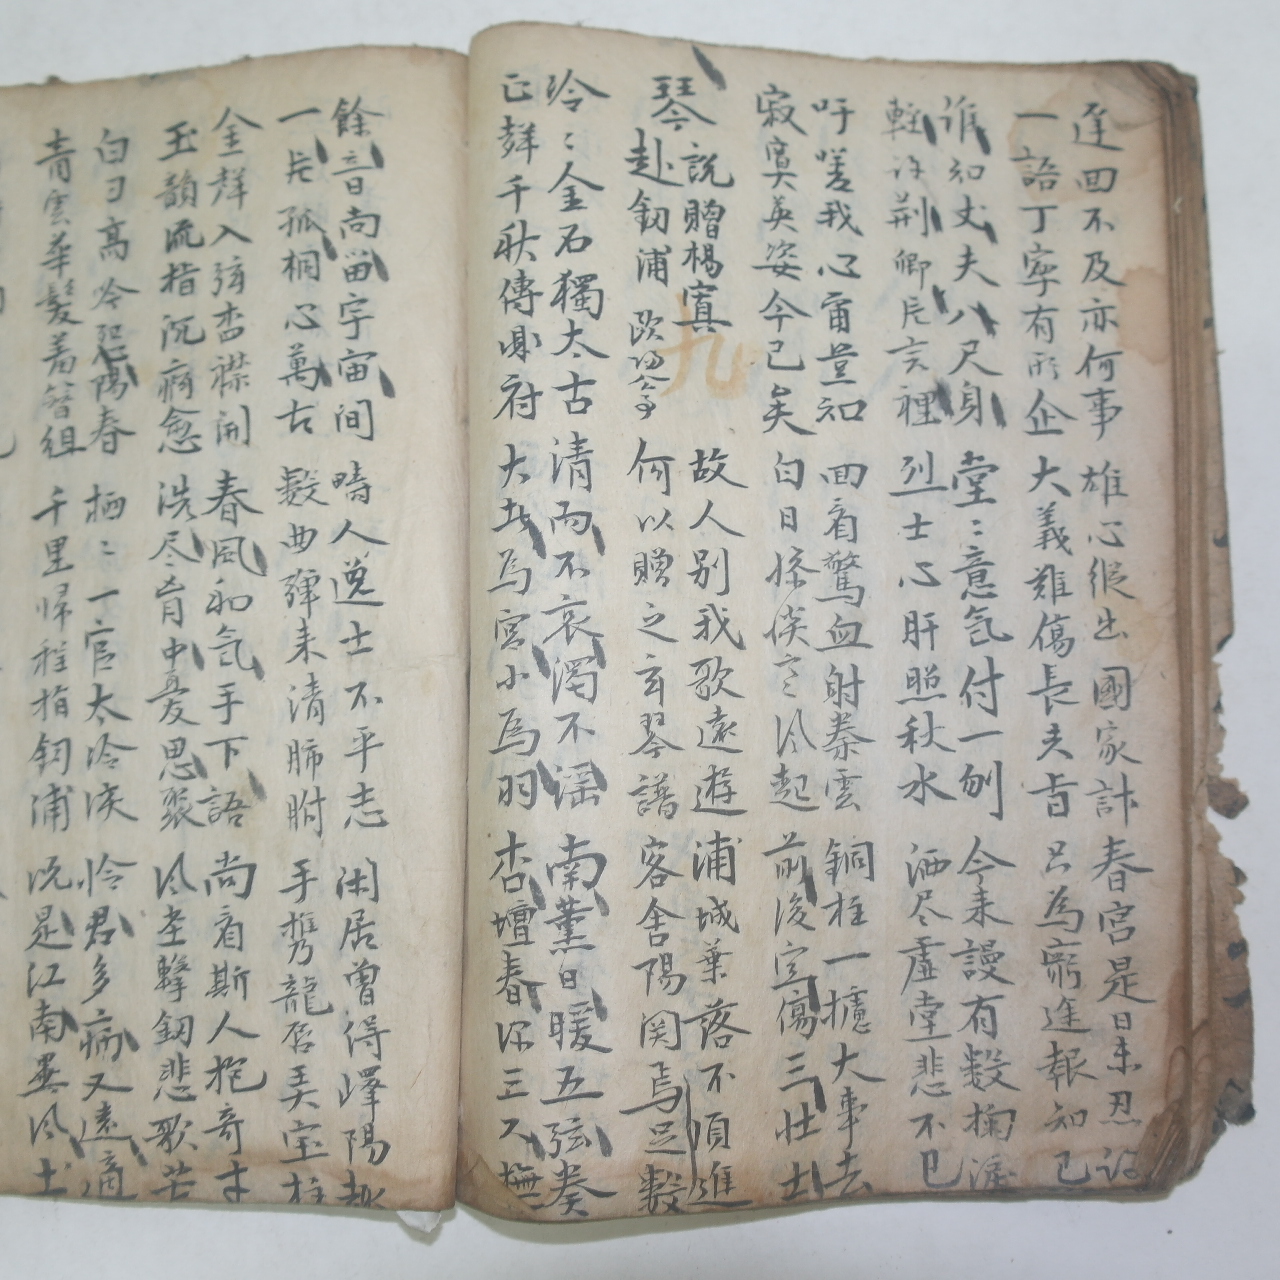 逢回不及亦何事 雄心縱出國家計 春宮是日未忍說
一語丁寧有形企 大義難傷長夫旨 只爲窮進報知己
誰知丈夫八尺身 堂〻意氣付一刎 今来謾有數掬淚
輕許荊卿片言裡 烈士心肝照秋水 洒尽虛堂悲不已
吁嗟我心甭豈知 回看驚血射秦雲 銅柱一攄大事去
寂寞英姿今已矣 白日條倏寒风起 前後空傷三壯士
琴說贈楊寘 故人別我歌遠遊 浦城葉落不須進
赴釰浦 何以贈之玄琴譜 客舍陽関焉足數
泠〻金石獨太古 清而不哀濁不滛 南薰日暖五弦奏
正聲千秋傳 府 大哉爲宮小爲羽 杏壇春深三人撫
餘音尚留宇宙间 疇人逸士不平志 闲居曾得嶧陽
一片孤桐心萬古 數曲彈来清肺胕 手携龍唇美
金聲入弦 襟開 春風和氣手下語 尚看斯人抱奇才
玉韻流指沉痾愈 洗尽胷中憂思聚 风 擊釰悲歌苦
白日高 陽春 栖〻一官太冷淡 怜君多病又遠適
青雲華髮着簪組 千里歸程指釰浦 况是江南異风土
九